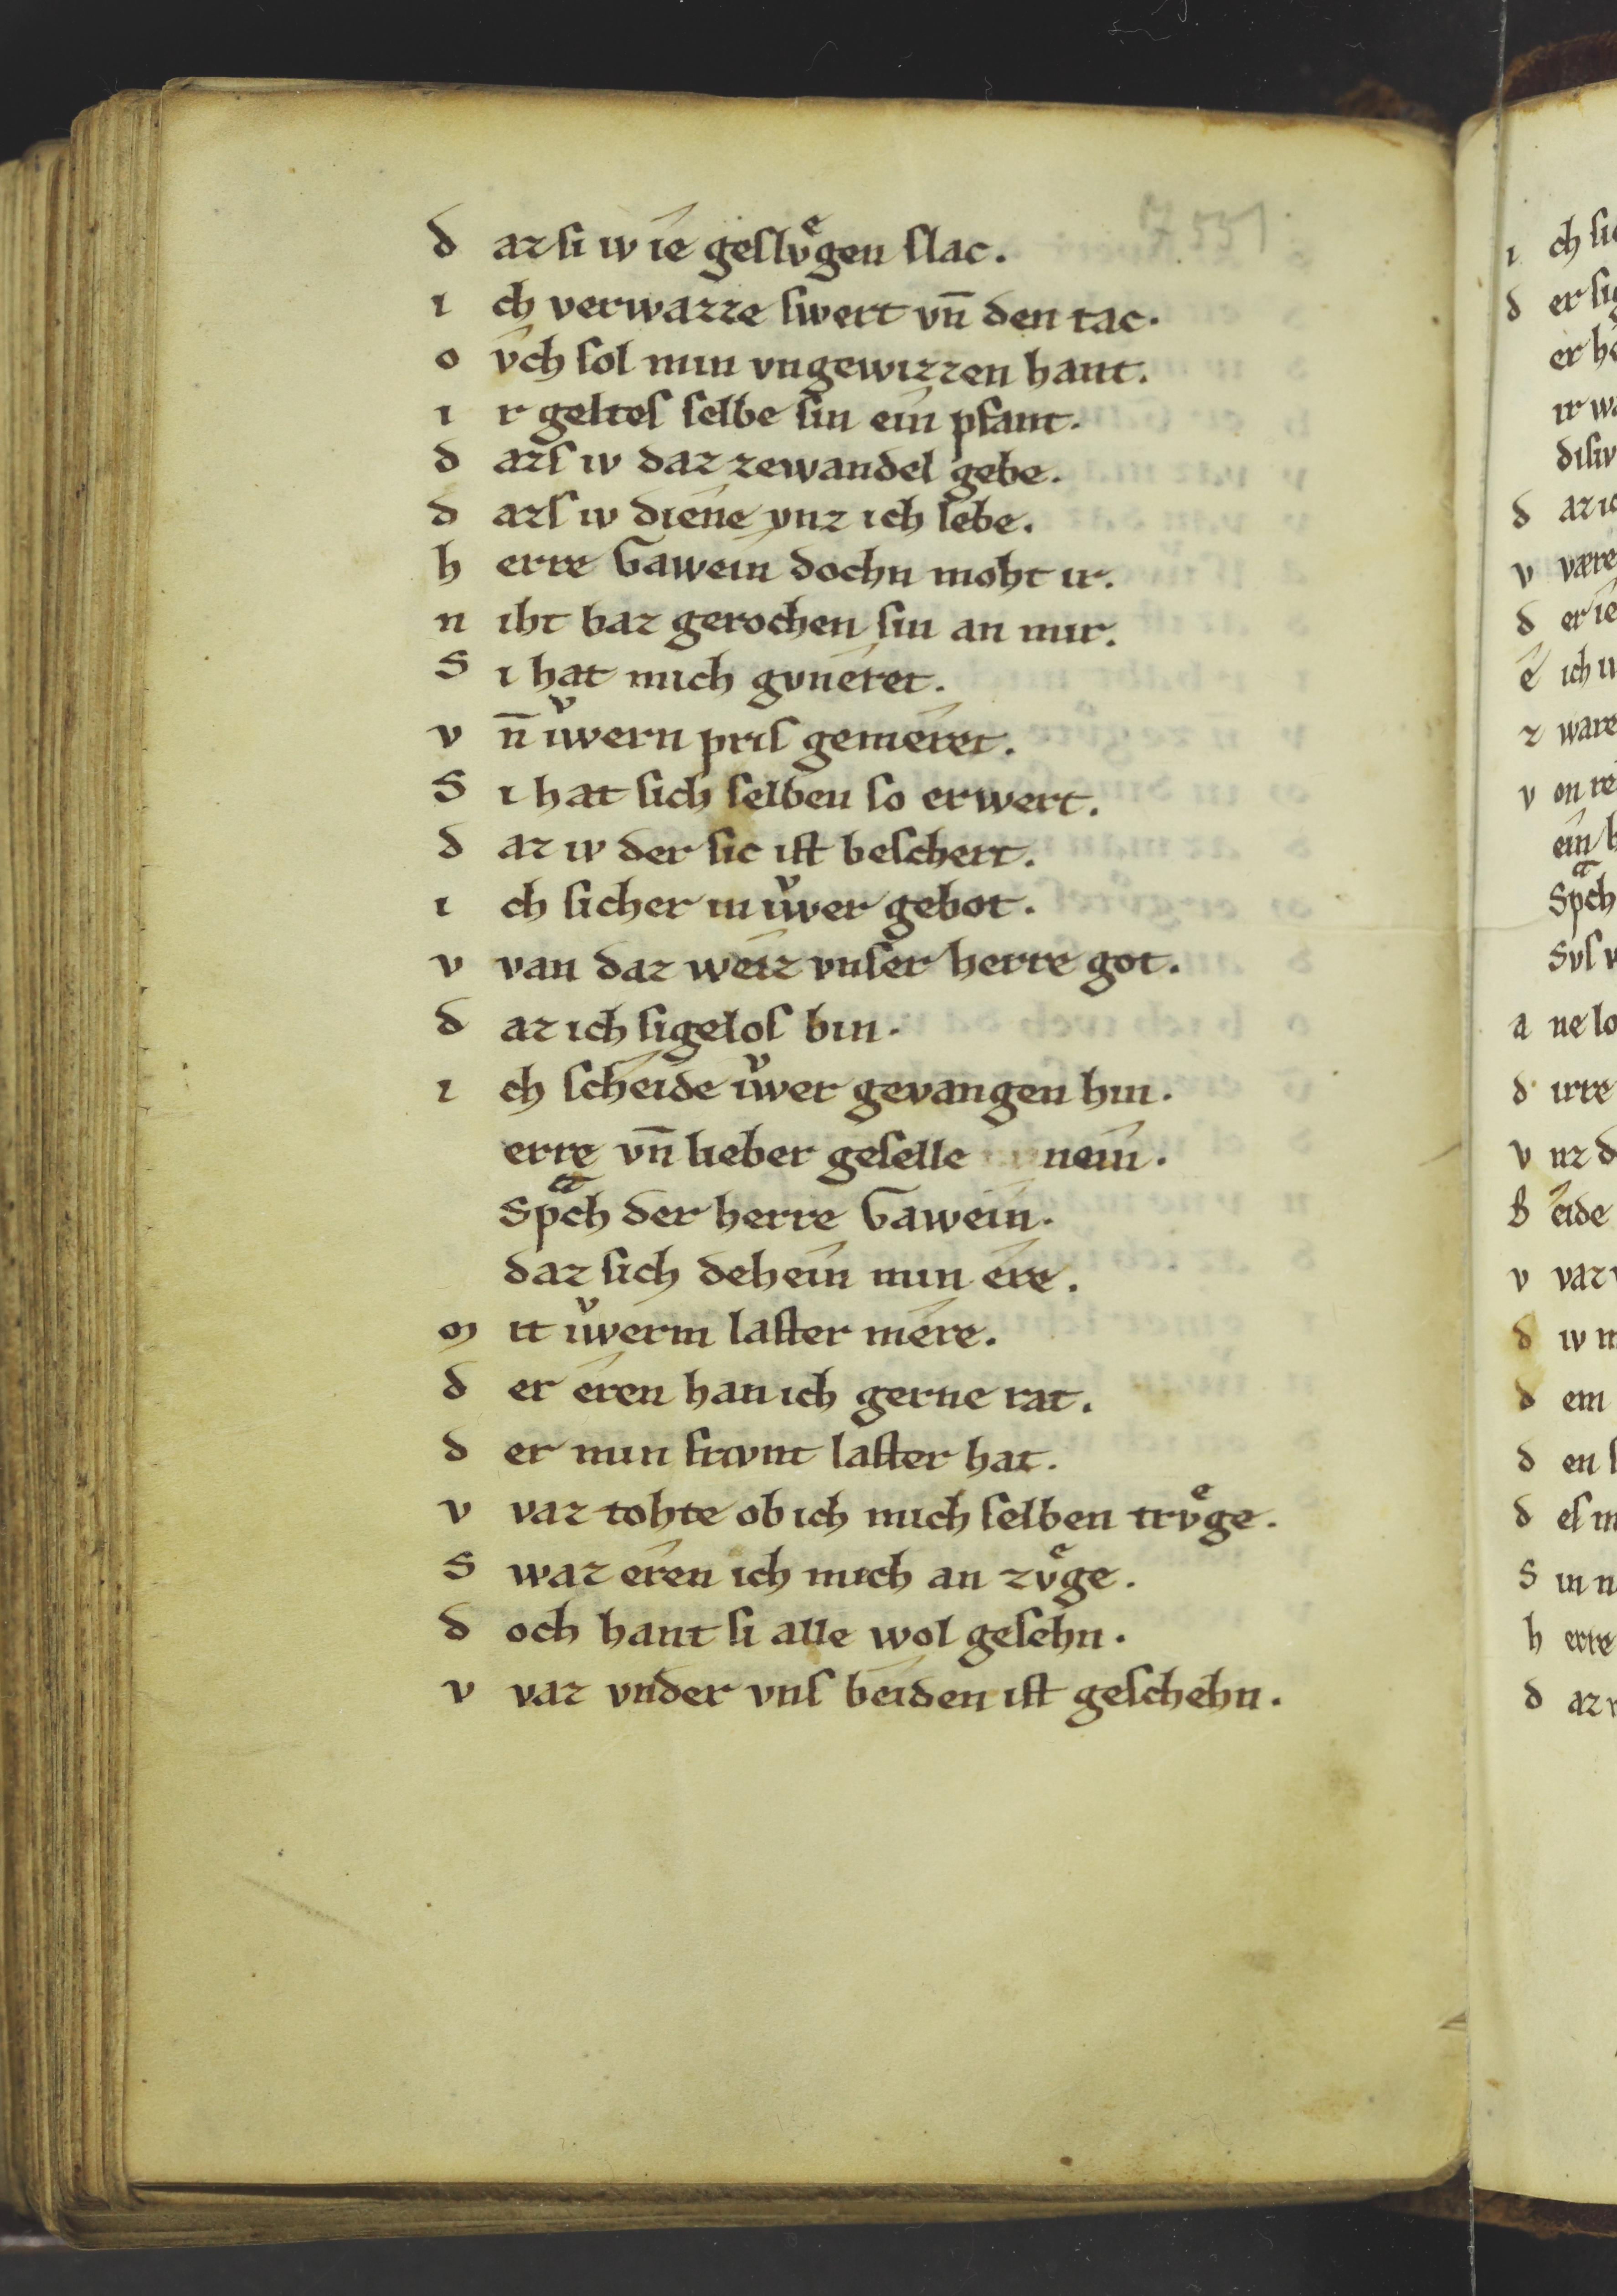 7551
d az si iv îe geslvͤgen slac.
i ch verwazze swert vn̄ den tac.
o v̂ch sol min vngewizzen hant.
i r geltes selbe sin eîn pfant.
d azs iv daz zewandel gebe.
d azs iv dîene vnz ich lebe.
h erre Gaweîn dochn moht ir.
n iht baz gerochen sin an mir.
S i hat mich gvnêret.
v n̄ iͮwern pris gemêret.
S i hat sich selben so erwert.
d az iv der sic ist beschert.
i ch sicher in iͮwer gebot.
v van daz weîz vnser herre got.
d az ich sigelos bin.
i ch scheîde iͮwer gevangen hin.
erre vn̄ lieber geselle neîn.
Spͣch der herre Gaweîn.
daz sich deheîn min êre.
m it iͮwerm laster mêre.
d er êren han ich gerne rat.
d er min frivnt laster hat.
v vaz tohte ob ich mich selben trvͤge.
S waz êren ich mich an zvͤge.
d och hant si alle wol gesehn.
v vaz vnder vns beîden ist geschehn.